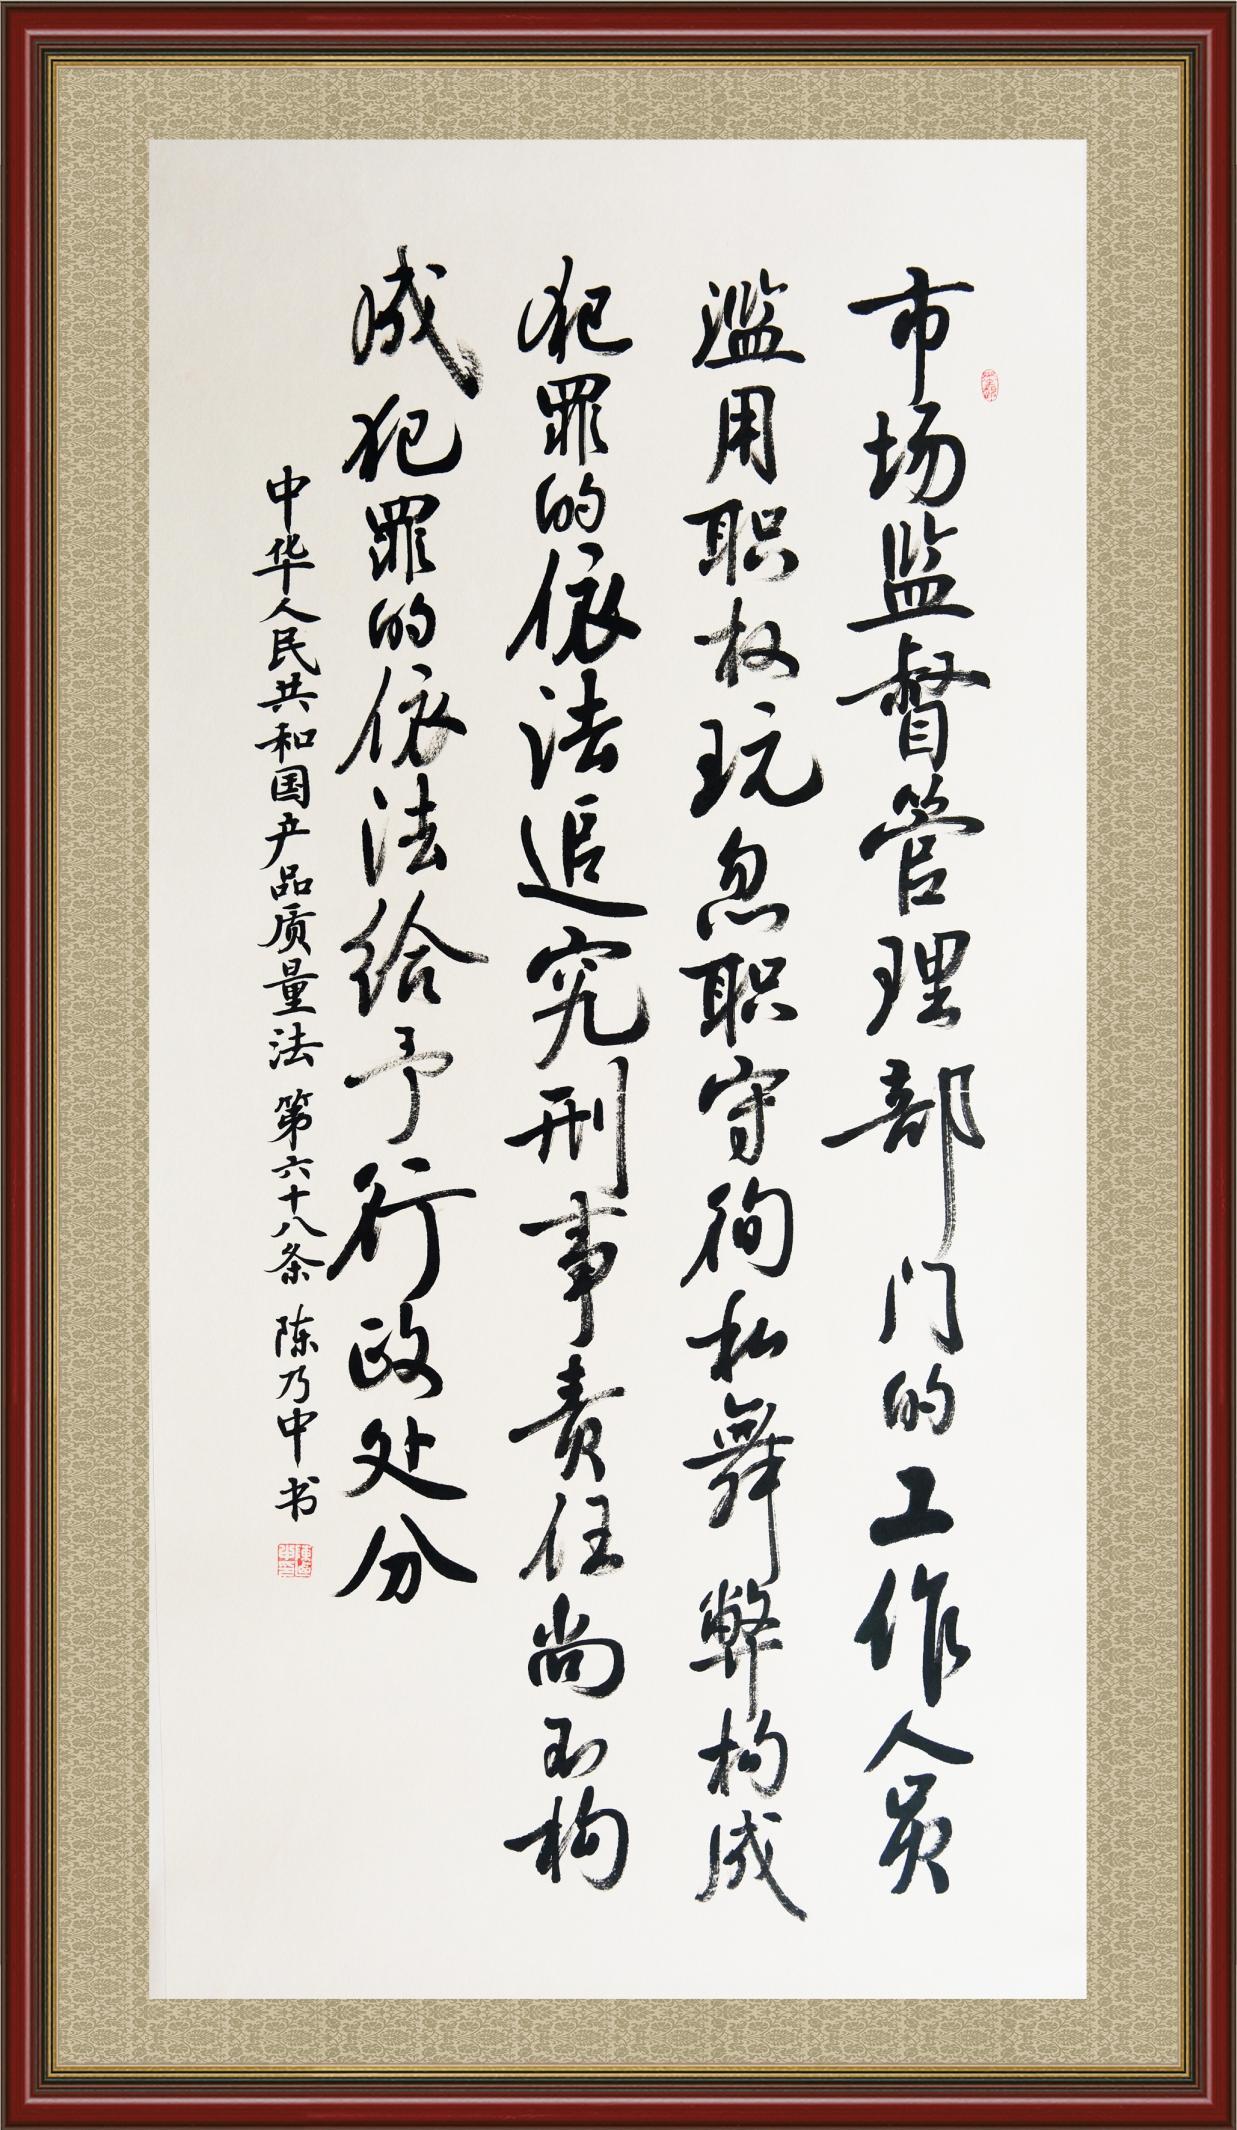 市场监督管理部门的工作人员
滥用职权玩忽职守徇私舞弊构成
犯罪的依法追究刑事责任尚不构
成犯罪的依法给予行政处分
中华人民共和国产品质量法 第六十八条 陈乃中书